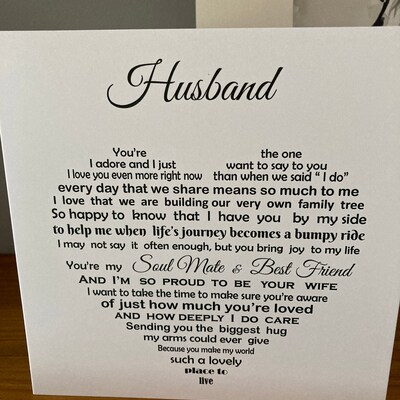 Husband
You're the one
I adore and I just want to say to you
I love you even more right now than when we said " I do"
every day that we share means so much to me
I love that we are building our very own family tree
So happy to know that I have you by my side
to help me when life's journey becomes a bumpy ride
I may not say it often enough, but you bring joy to my life
You're my Soul Mate & Best Friend
AND I'M SO PROUD TO BE YOUR WIFE
I want to take the time to make sure you're aware
of just how much you're loved
AND HOW DEEPLY I DO CARE
Sending you the biggest hug
my arms could ever give
Because you make my world
such a lovely
place to
live